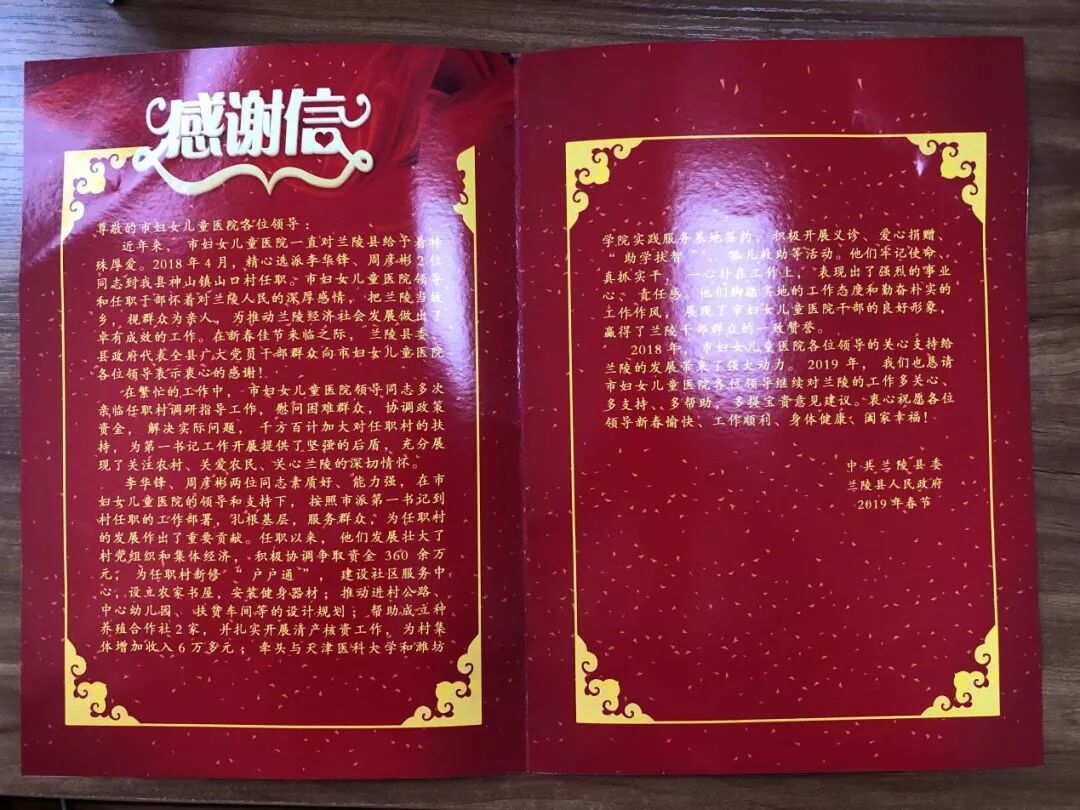 感谢信
尊敬的市妇女儿童医院各位领导：
近年来， 市妇女儿童医院一直对兰陵县给予着特
殊厚爱。2018 年 4 月，精心选派李华锋、周彦彬 2 位
同志到我县神山镇山口村任职。市妇女儿童医院领导
和任职干部怀着对兰陵人民的深厚感情， 把兰陵当故
乡，视群众为亲人，为推动兰陵经济社会发展做出了
卓有成效的工作。在新春佳节来临之际， 兰陵县委、
县政府代表全县广大党员干部群众向市妇女儿童医院
各位领导表示衷心的感谢！
在繁忙的工作中， 市妇女儿童医院领导同志多次
亲临任职村调研指导工作，慰问困难群众，协调政策
资金， 解决实际问题， 千方百计加大对任职村的扶
持，为第一书记工作开展提供了坚强的后盾，充分展
现了关注农村、关爱农民、关心兰陵的深切情怀。
李华锋、周彦彬两位同志素质好、能力强，在市
妇女儿童医院的领导和支持下，按照市派第一书记到
村任职的工作部署，扎根基层，服务群众，为任职村
的发展作出了重要贡献。任职以来，他们发展壮大了
村党组织和集体经济，积极协调争取资金 360 余万
元；为任职村新修“户户通”，建设社区服务中
心，设立农家书屋，安装健身器材；推动进村公路、
中心幼儿园、扶贫车间等的设计规划；帮助成立种
养殖合作社 2 家，并扎实开展清产核资工作，为村集
体增加收入 6 万多元；牵头与天津医科大学和潍坊
学院实践服务基地签约，积极开展义诊、爱心捐赠、
“助学扶智”、 儿救助等活动。他们牢记使命、
真抓实干， 一心扑在工作上，表现出了强烈的事业
心、责任感。他们脚踏实地的工作态度和勤奋朴实的
工作作风，展现了市妇女儿童医院干部的良好形象，
赢得了兰陵干部群众的一致赞誉。
2018 年，市妇女儿童医院各位领导的关心支持给
兰陵的发展带来了强大动力。2019 年， 我们也恳请
市妇女儿童医院各位领导继续对兰陵的工作多关心、
多支持、多帮助，多提宝贵意见建议。衷心祝愿各位
领导新春愉快、工作顺利、身体健康、阖家幸福！
中共兰陵县委
兰陵县人民政府
2019 年春节